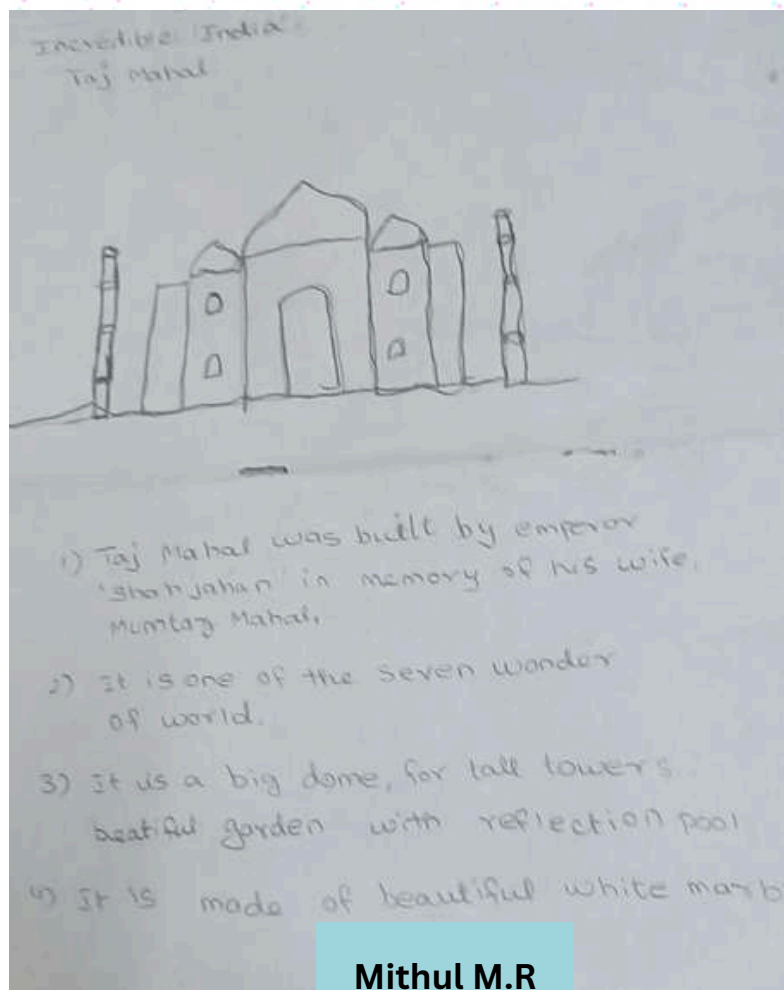 Incredible India
Taj Mahal
1) Taj Mahal was built by emperor
'Shah Jahan' in memory of his wife,
Mumtaz Mahal,
2) It is one of the seven wonder
of world.
3) It is a big dome, for tall towers
beatiful garden with reflection pool
4) It is made of beautiful white marb
Mithul M.R